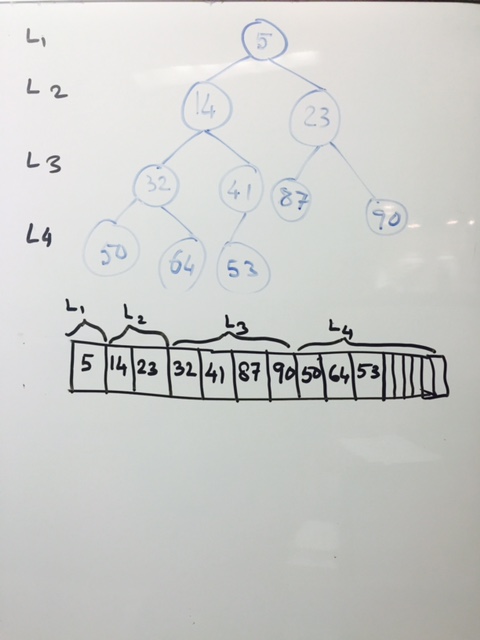 L1 5
L2 14 23
L3 32 41 87 90
L4 50 64 53
L1 L2 L3 L4
5 14 23 32 41 87 90 50 64 53